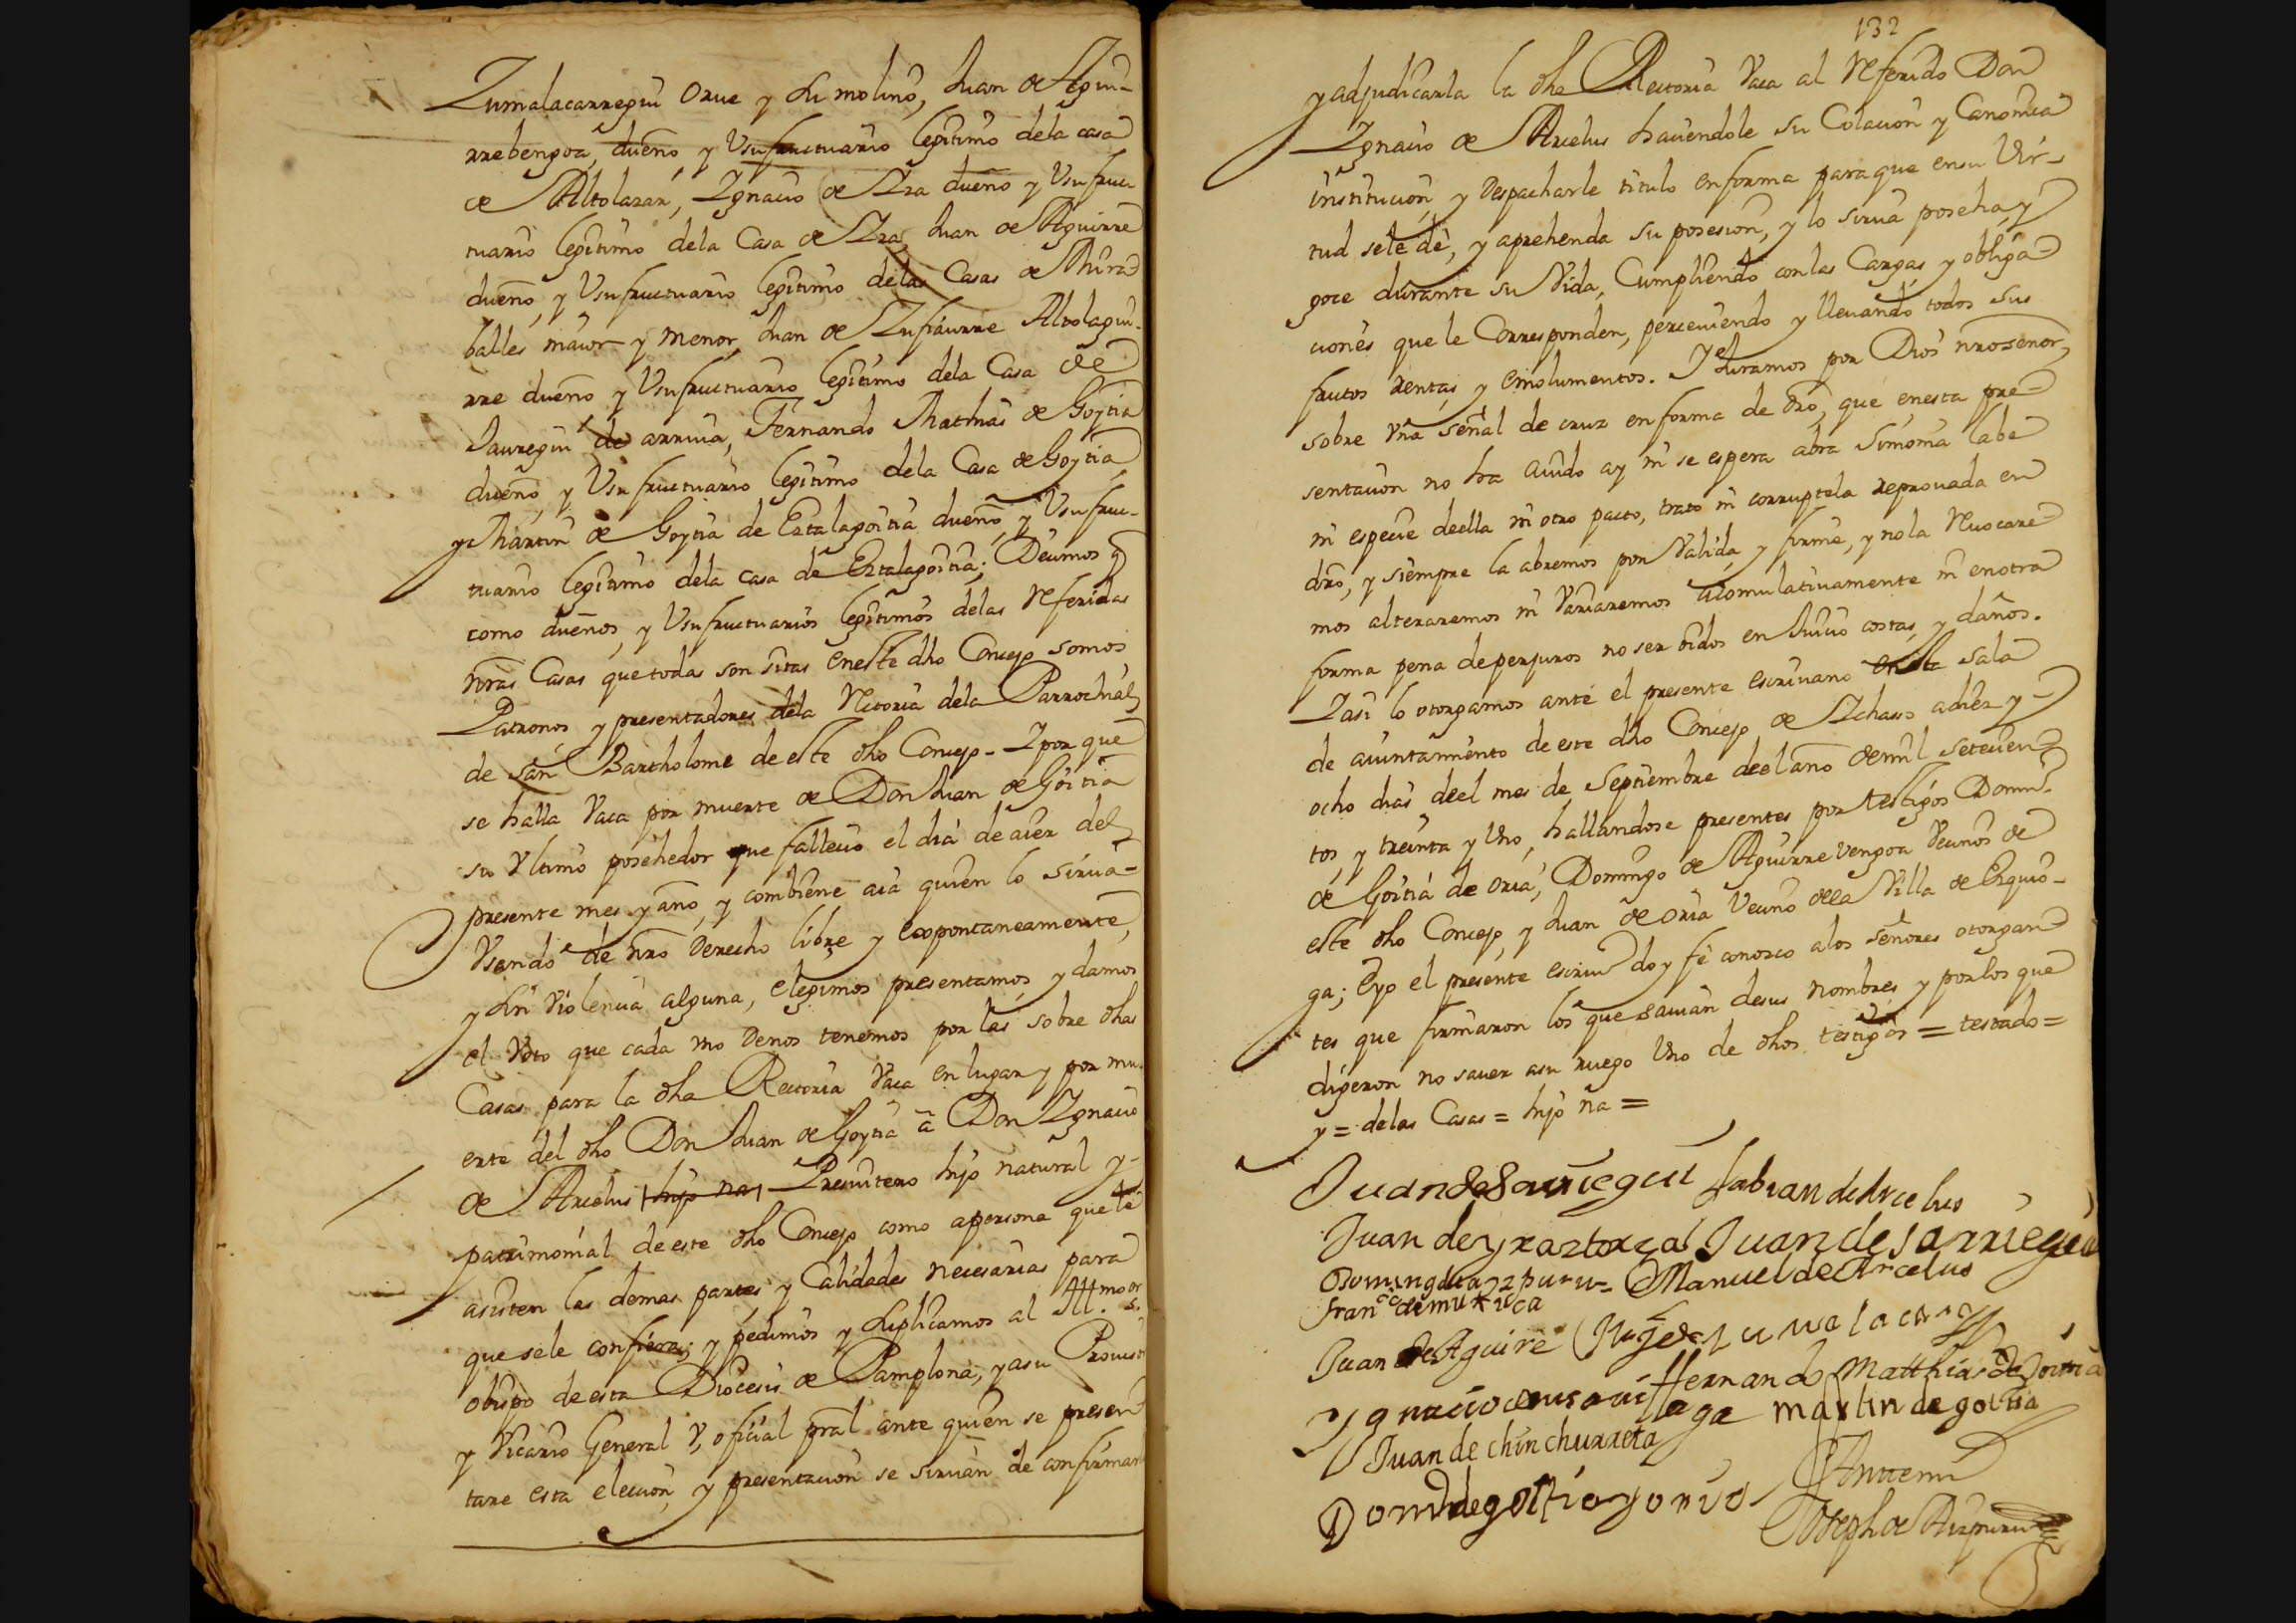 Zumalacarregui Orue y su molino, Juan de Aguir-
rrebengoa, dueño y Usufructuario legitimo dela casa
de Altolaran, Ignacio de Iza dueño y Usufruc-
tuario legitimo dela Casa de Iza, Juan de Aguirre
dueño, y Usufructuario legitimo delas Casas de Mura-
balles maior y menor, Juan de Izufiaurre Altolagui-
rre dueño y Usufructuario legitimo dela Casa de
Jauregui de arriua, Fernando Mathias de Goytia
dueño, y Usufructuario legitimo dela Casa de Goytia
y Martin de Goytia de Eztalagoitia dueño, y Usufruc-
tuario legitimo dela casa de Eztalagoitia; Decimos q
como dueños, y Usufructuarios legitimos delas referidas
nras Casas que todas son sitas eneste dho Concejo somos
Patronos y presentadores dela Retoria dela Parrochial
de san Bartholome de este dho Concejo - Y por que
se halla Vaca por muerte de Don Juan de Goitia
su Vltimo posehedor que fallecio el dia de aier del
presente mes y año, y combiene aia quien lo sirua-
Vsando de nro Derecho libre y expontaneamente,
y sin Violencia alguna, elegimos presentamos, y damos
el Voto que cada vno Denos tenemos por las sobre dhas
Casas para la dha Rectoria Vaca en lugar y por mu-
erte del dho Don Juan de Goytia â Don Ignacio
de Arcelus hijo na Presuitero hijo natural y-
patrimonial de este dho Concejo como apersona que le
asisten las demas partes y Calidades necesarias para
que sele confiera; y pedimos y suplicamos al Ill.mo s.or
obispo de esta Diocesis de Pamplona, y asu Prouisor
y Vicario General V, oficial pral ante quien se presen
tare esta eleccion, y presentacion se siruan de confirmar
132
y adjudicarla la dha Rectoria Vaca al referido Don
Ignacio de Arcelus haciendole su Colacion y Canonica
institucion, y Despacharle titulo enforma paraque ensu Vir-
tud sele dè, y aprehenda su posesion, y lo sirua poseha, y
goce durante su Vida, Cumpliendo conlas Cargas, y obliga-
ciones que le Corresponden, perceuiendo y lleuando todos sus
frutos rentas, y emolumentos. Y Juramos por Dios nro señor,
sobre vna señal de cruz en forma de dro, que enesta pre-
sentacion no ha auido ay ni se espera abra Simonia labe
ni especie deella ni otro pacto, trato ni corruptela reprouada en
dro, y siempre la abremos por Valida, y firme, y nola reuocare-
mos alteraremos ni Variaremos acomulatiuamente ni enotra
forma pena deperjuros no ser oidos en Juicio costas, y daños.
Yasi lo otorgamos ante el presente escriuano enesta sala
de aiuntamiento de este dho Concejo de Ichaso adiez y-
ocho dias deel mes de Septiembre deelaño demil setecien-
tos, y treinta y Uno, hallandose presentes por testigos Domin.
de Goitia de oria, Domingo de Aguirrevengoa Vecinos de
este dho Concejo, y Juan de oria Vecino dela Villa de Ezquio-
ga; Eyo el presente escriu.no doy fé conozco alos señores otorgan
tes que firmaron los que sauian desus nombres, y porlos que
dijeron no sauer asu ruego Uno de dhos testigos = testado=
y = delas Casas = hijo na =
Juan de Sarriegui fabian de Arcelus
Juan de yraztorza Juan de sarriegui
Domingo de azpuru- Manuel de Arcelus
fran.co de muxica
Juan de Aguire
Juan de chinchurreta
Fernando Matthias de Goitia
martin de goitia
Dom de goitia y oria
Ante mi
Joseph de Aizpuru